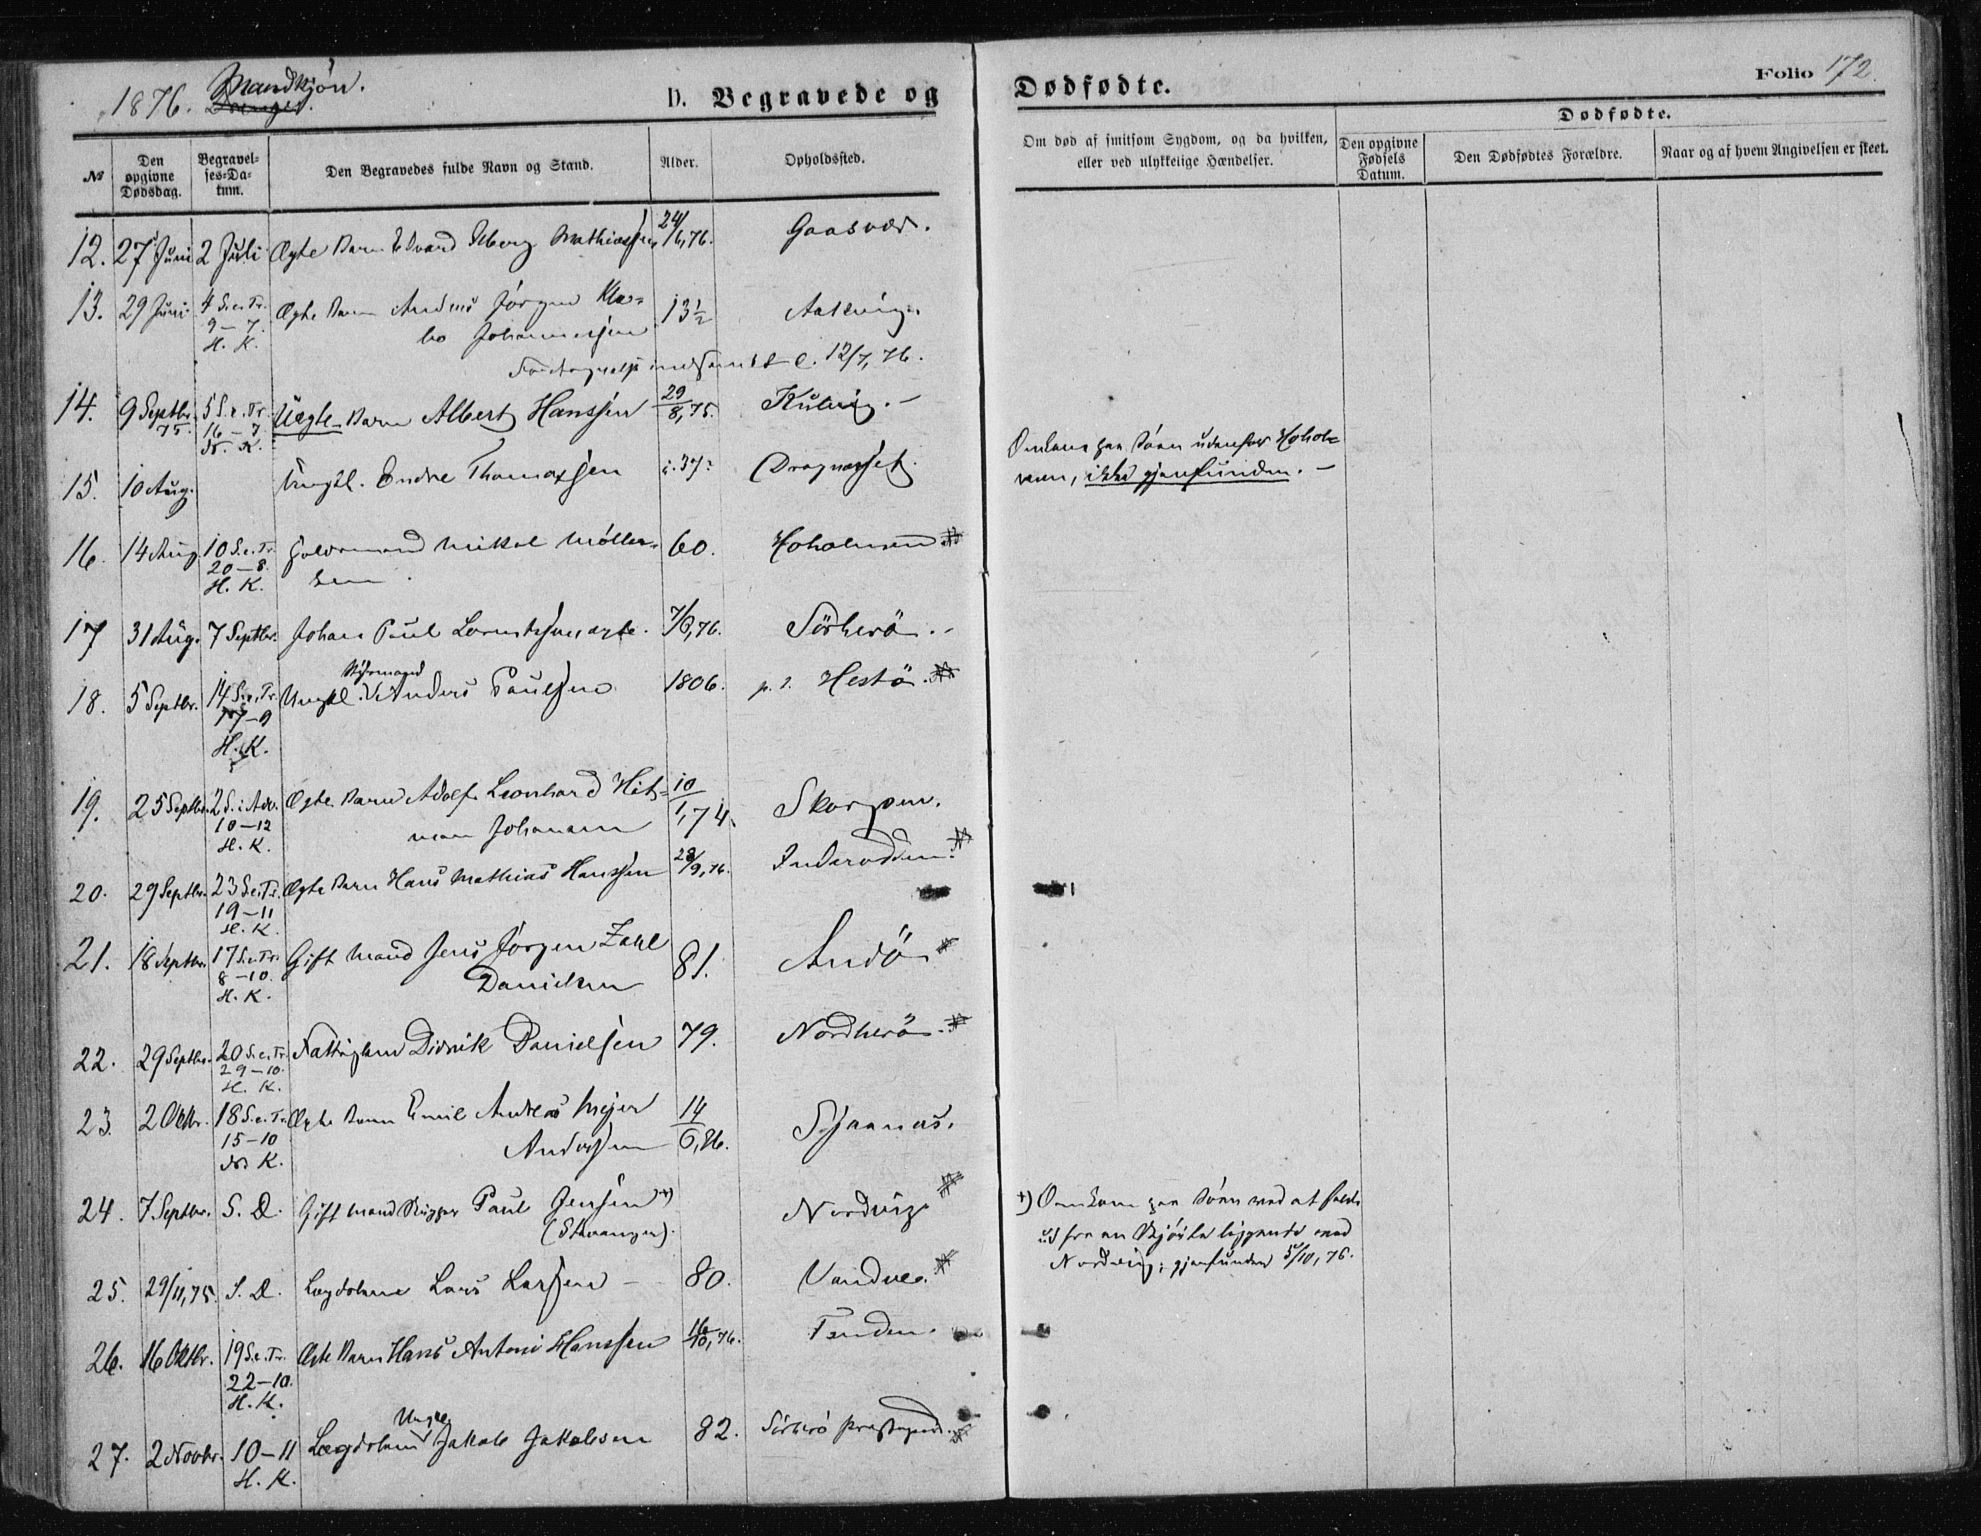 1876. Mandkjön.
D. Begravede og Dødfødte.
Folio 172.
№
Den opgivne Dødsdag.
Begravelses-Datum.
Den Begravedes fulde Navn og Stand.
Alder.
Opholdssted.
Om død af smitsom Sygdom, og da hvilken, eller ved ulykkelige Hændelser.
Dødfødte.
Den opgivne Fødsels Datum.
Den Dødfødtes Forældre.
Naar og af hvem Angivelsen er skeet.
12. 27 Juni 2 Juli Ægte Barn Edvard Mathiassen 24/6,76. Gaasvær.
13. 29 Juni 4 S.e.Tr. Ægte Barn Andreas Jörgen 13½
9–7. Johannessen
H. K.
12/7, 76.
14. 9 Septbr. 75. 5 S.e.Tr. Uægte Barn Albert Hanssen 29/8,75.
16–7
15. 10 Aug. Ungkl. Endre Thomassen i. 37: Dragnæsset. Omkom paa Söen udenfor Hohol-
men, ikke gjenfunden. –
16. 14 Aug. 10 S.e.Tr. Gaardmand Mikal Möller- 60. Hoholmen
20–8. sen
H. K.
17 31 Aug. 7 Septbr. Johan Paul Lorentzsen ægte. 7/6,76. Sörherö. –
Styrmand
18. 5 Septbr. 14 S.e.Tr. Ungkl. Anders Paulsen 1806. Hestö.
17–9
H. K.
19. 25 Septbr. 2 S. i Adv. Ægte Barn Adolf Leonhard Hit- 10/1,74. Skarpen.
10–12 man Johansen
H. K.
20. 29 Septbr. 23 S.e.Tr. Ægte Barn Hans Mathias Hanssen 28/9,76.
19–11
H. K.
21. 18 Septbr. 17 S.e.Tr. Gift Mand Jens Jörgen Zahl 81. Andö
8–10. Danielsen
H. K.
22. 29 Septbr. 20 S.e.Tr. Fattiglem Didrik Danielsen 79. Nordherö.
29–10.
H. K.
23. 2 Oktbr. 18 S.e.Tr. Ægte Barn Emil Andreas Mejer 14/6,76.
15–10 Anderssen
24. 7 Septbr. S. D. Gift Mand Skipper Paul Jensen +) Nordvig +) Omkom paa Söen ved at falde
(Stavanger). ud fra en Skjöite liggende ved
Nordvig; gjenfunden 5/10, 76.
25. 29/11,75. S. D. Lægdslem Lars Larsen – 80. Vandve.
26. 16 Oktbr. 19 S.e.Tr. Ægte Barn Hans Antoni Hanssen 16/10,76. Tenden.
22–10.
H. K.
Ungkl.
27. 2 Novbr. 10–11 Lægdslem Jakob Jakobsen 82. Sörherö Præstegaard.
H. K.